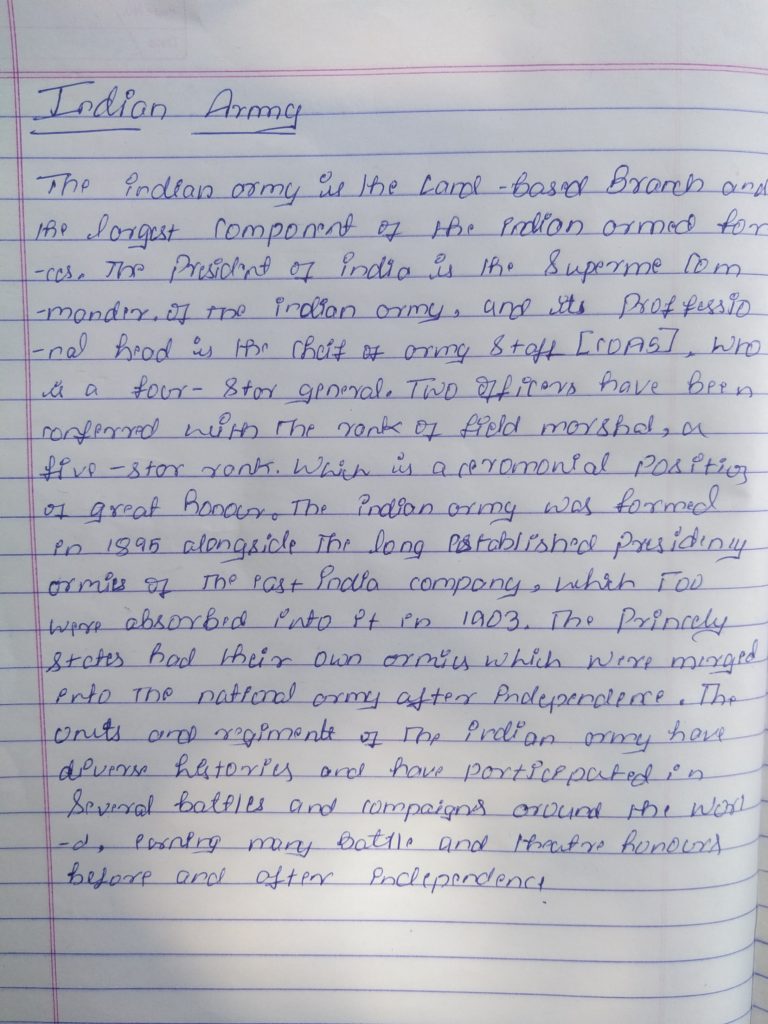 Indian Army
The indian army is the Land-based Branch and
the largest Component of the indian armed for
-ces. The President of india is the Superme Com
-mander. of the indian army, and its Proffessio
-nal head is the Cheif of army Staff [COAS], who
is a four-Star general. Two officers have been
conferred with The rank of field marshal, a
five-star rank. Which is a ceromonial Position
of great honour. The indian army was formed
in 1895 alongside The long established presidency
armies of The east india company, which Too
were absorbed into it in 1903. The Princely
States had their own armies which were merged
into The national army after independence. The
units and regiments of The indian army have
diverse histories and have participated in
Several battles and campaigns around the worl
-d, earning many battle and theatre honours
before and after independency